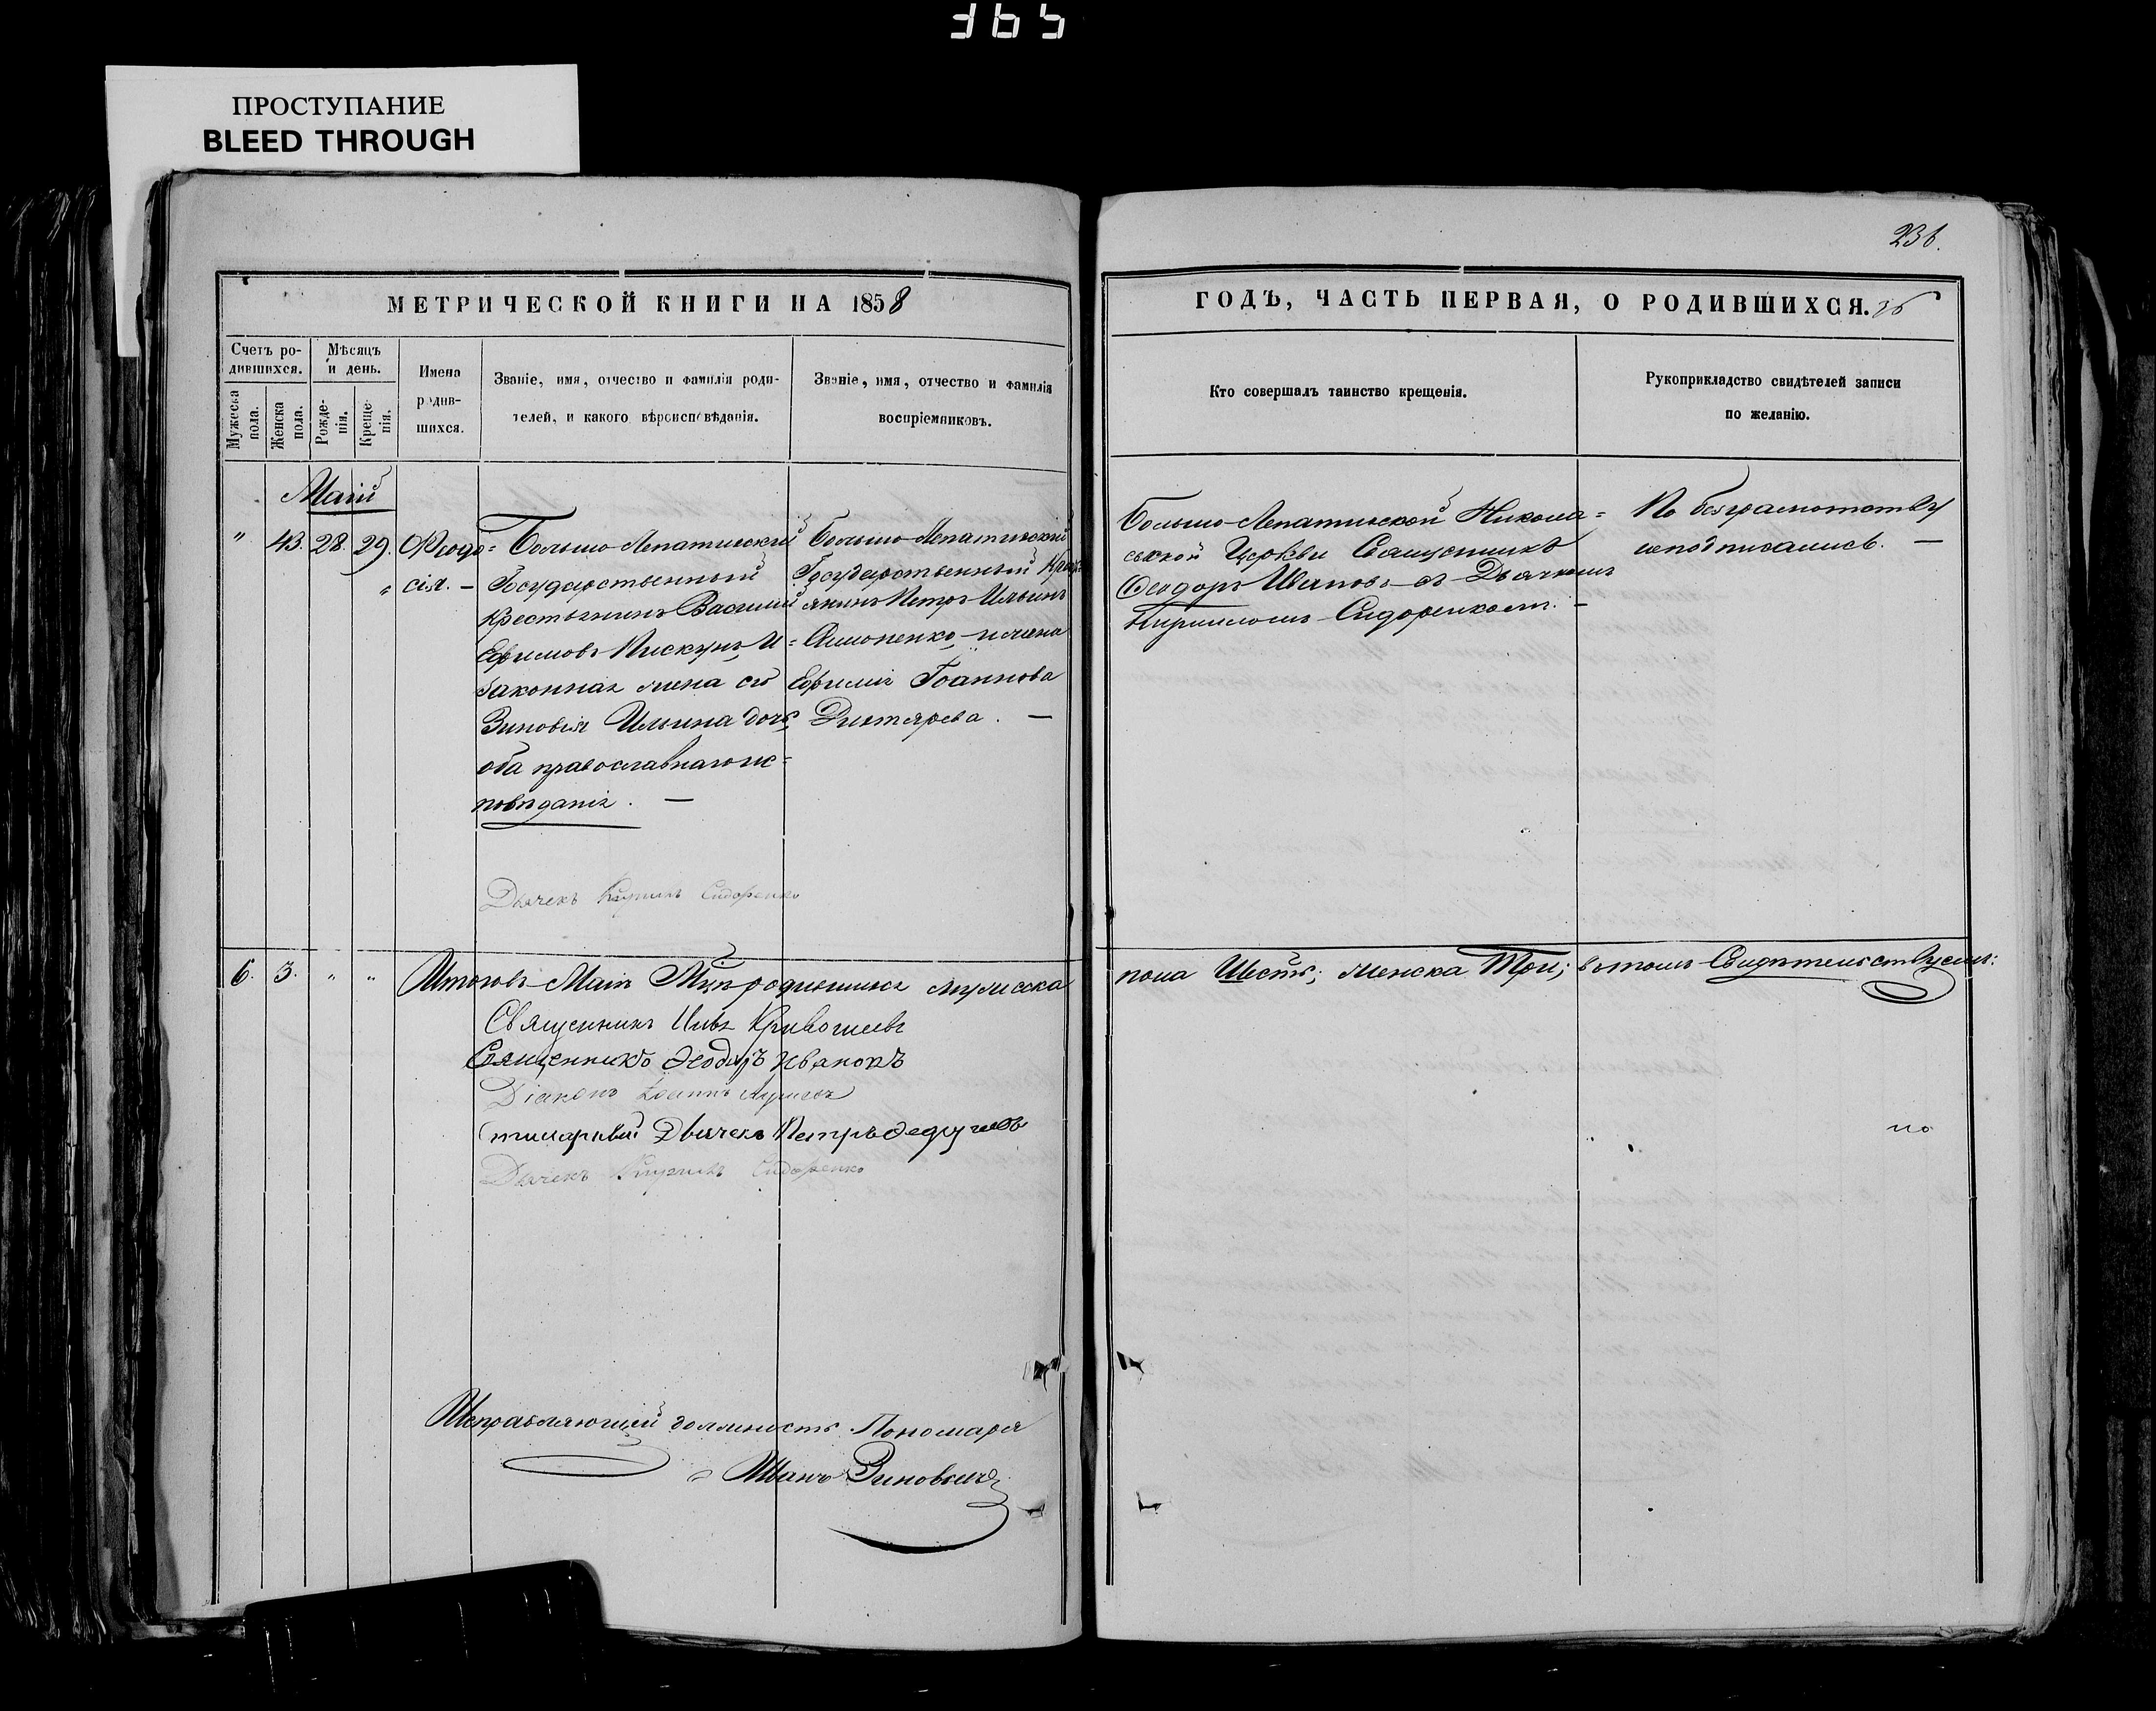 365
ПРОСТУПАНИЕ
BLEED THROUGH
236.
МЕТРИЧЕСКОЙ КНИГИ НА 1858
ГОДЪ, ЧАСТЬ ПЕРВАЯ, О РОДИВШИХСЯ. 36
Счетъ ро-
дившихся.
Мужеска
пола.
Женска
пола.
Мѣсяцъ
и день.
Рожде-
нія.
Креще-
нія.
Имена
родив-
шихся.
Званіе, имя, отчество и фамилія роди-
телей, и какого вѣроисповѣданія.
Званіе, имя, отчество и фамилія
воспріемниковъ.
Кто совершалъ таинство крещенія.
Рукоприкладство свидѣтелей записи
по желанію.
Маій
" 43. 28. 29.
Ѳеодо=
сія. —
Большо-Лепатиский
Государственный
крестьянинъ Василий
Ефимовъ Пискунъ, и
законная жена его
Зиновія Ильина дочь
оба православнаго ис=
повѣданія. —
Большо-Лепатиский
Государственный Крест=
янинъ Петръ Ильинъ
=Ѳимоненко, и жена
Ефимія Іоаннова
Дихтярева. —
Большо-Лепатиской Никола=
евской Церкви Священникъ
Ѳеодоръ Ивановъ съ Дьячкомъ
Кирилломъ Сидоренкомъ. —
По безграмотству
неподписались. —
Дьячекъ Кирилъ Сидоренко
6. 3. " " Итого въ Маіѣ Мцѣ родившихся мужеска
пола Шесть; женска Три; въ томъ Свидѣтельствуемъ:
Священникъ Илья Кривошеевъ
Священникъ Ѳеодоръ Ивановъ
Діаконъ Іоаннъ
Дьячекъ Петръ
Дьячекъ Кирилъ Сидоренко
по
Исправляющий должность Пономаря
Иванъ Зиновьевъ